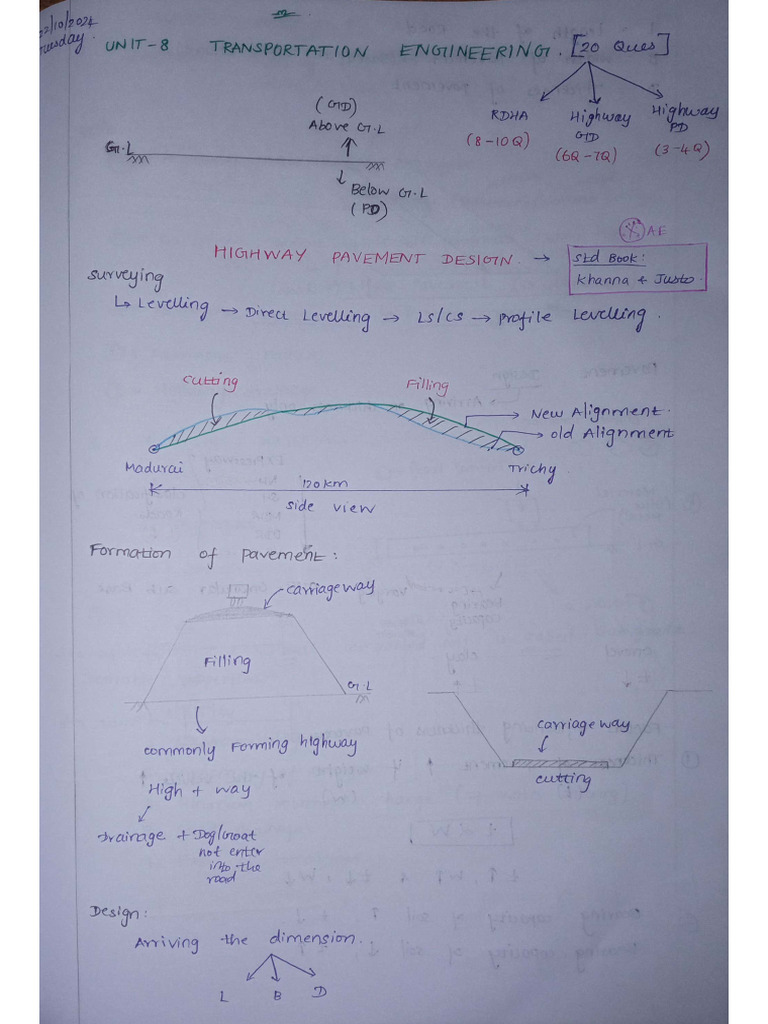 22/10/2024
Tuesday
UNIT-8 TRANSPORTATION ENGINEERING. [20 Ques]
RDHA
(8-10Q)
Highway
GD
(6Q-7Q)
Highway
PD
(3-4Q)
(GD)
Above G.L
G.L
Below G.L
(PD)
HIGHWAY PAVEMENT DESIGN →
AE
Std Book:
Khanna & Justo.
Surveying
↳ Levelling → Direct Levelling → LS/CS → Profile Levelling.
Cutting
Filling
New Alignment.
old Alignment
Madurai
Trichy
120km
side view
Formation of pavement:
carriageway
Filling
G.L
commonly Forming highway
High + way
Drainage + Dog/Goat
not enter
into the
road
carriageway
cutting
Design:
Arriving the dimension.
L B D